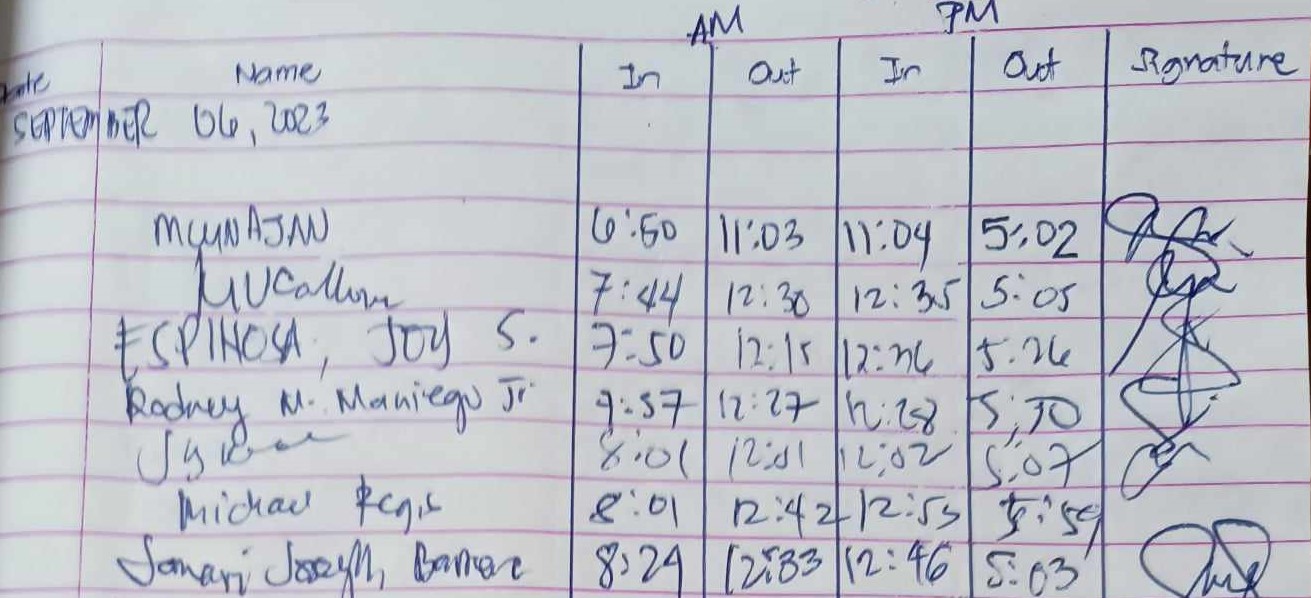 AM PM
Date Name In Out In Out Signature
SEPTEMBER 06, 2023
6:50 11:03 11:04 5:02
7:44 12:30 12:35 5:05
ESPINOSA, JOY S. 7:50 12:15 12:26 5:26
Rodney M. Maniego Jr. 12:27 12:28 5:30
8:01 12:01 12:02 5:07
Michael Regis 8:01 12:42 12:53 5:59
Joseph, 8:24 12:33 12:46 5:03